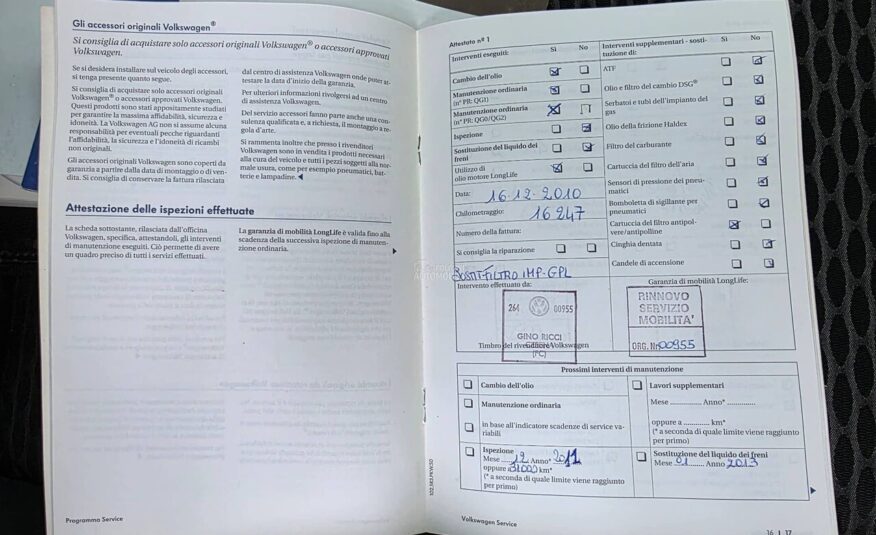 Gli accessori originali Volkswagen®
Si consiglia di acquistare solo accessori originali Volkswagen® o accessori approvati
Volkswagen.
Se si desidera installare sul veicolo degli accessori,
si tenga presente quanto segue.
Si consiglia di acquistare solo accessori originali
Volkswagen® o accessori approvati Volkswagen.
Questi prodotti sono stati appositamente studiati
per garantire la massima affidabilità, sicurezza e
idoneità. La Volkswagen AG non si assume alcuna
responsabilità per eventuali pecche riguardanti
l'affidabilità, la sicurezza e l'idoneità di ricambi
non originali.
Gli accessori originali Volkswagen sono coperti da
garanzia a partire dalla data di montaggio o di ven-
dita. Si consiglia di conservare la fattura rilasciata
dal centro di assistenza Volkswagen onde poter at-
testare la data d'inizio della garanzia.
Per ulteriori informazioni rivolgersi ad un centro
di assistenza Volkswagen.
Del servizio accessori fanno parte anche una con-
sulenza qualificata e, a richiesta, il montaggio a re-
gola d'arte.
Si rammenta inoltre che presso i rivenditori
Volkswagen sono in vendita i prodotti necessari
alla cura del veicolo e tutti i pezzi soggetti alla nor-
male usura, come per esempio pneumatici, bat-
terie e lampadine.
Attestazione delle ispezioni effettuate
La scheda sottostante, rilasciata dall'officina
Volkswagen, specifica, attestandoli, gli interventi
di manutenzione eseguiti. Ciò permette di avere
un quadro preciso di tutti i servizi effettuati.
La garanzia di mobilità LongLife è valida fino alla
scadenza della successiva ispezione di manuten-
zione ordinaria.
Programma Service
Attestato nº 1
Interventi eseguiti:
Sì
No
Cambio dell'olio
Manutenzione ordinaria
(nº PR: QG1)
Manutenzione ordinaria
(nº PR: QG0/QG2)
Ispezione
Sostituzione del liquido dei
freni
Utilizzo di
olio motore LongLife
Data:
16-12-2010
Chilometraggio:
16247
Numero della fattura:
Si consiglia la riparazione
SOSTIT-FILTRO IMP-GPL
Intervento effettuato da:
264
00955
GINO RICCI
(FC)
Timbro del rivenditore Volkswagen
Interventi supplementari - sosti-
tuzione di:
Sì
No
ATF
Olio e filtro del cambio DSG®
Serbatoi e tubi dell'impianto del
gas
Olio della frizione Haldex
Filtro del carburante
Cartuccia del filtro dell'aria
Sensori di pressione dei pneu-
matici
Bomboletta di sigillante per
pneumatici
Cartuccia del filtro antipol-
vere/antipolline
Cinghia dentata
Candele di accensione
Garanzia di mobilità LongLife:
RINNOVO
SERVIZIO
MOBILITA'
ORG. Nr. 00955
Prossimi interventi di manutenzione
Cambio dell'olio
Manutenzione ordinaria
in base all'indicatore scadenze di service va-
riabili
Ispezione
Mese 12 Anno* 2011
oppure a 31000 km*
(* a seconda di quale limite viene raggiunto
per primo)
Lavori supplementari
Mese ......... Anno* ..............
oppure a ............. km*
(* a seconda di quale limite viene raggiunto
per primo)
Sostituzione del liquido dei freni
Mese 01 Anno 2013
Volkswagen Service
16 | 17